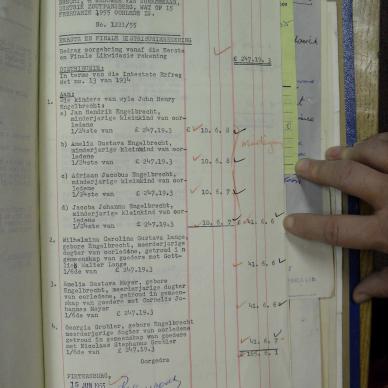 DISTRIK ZOUTPANSBERG, WAT OP 15
FEBRUARIE 1955 OORLEDE IS.
No. 1223/55
EERSTE EN FINALE DISTRIBUSIEREKENING
Bedrag oorgebring vanaf die Eerste
en Finale Likwidasie rekening
£ 247.19. 3
DISTRIBUSIE:
In terme van die Intestate Erfreg
Wet no. 13 van 1934
AAN:
1. Die kinders van wyle John Henry
Engelbrecht:
a) Jan Hendrik Engelbrecht,
minderjarige kleinkind van oor-
ledene
1/24ste van £ 247.19.3 £ 10. 6. 8
b) Amelia Gustava Engelbrecht,
minderjarige kleinkind van oor-
ledene
1/24ste van £ 247.19.3 10. 6. 8
c) Adriaan Jacobus Engelbrecht,
minderjarige kleinkind van oor-
ledene
1/24ste van £ 247.19.3 10. 6. 7
d) Jacoba Johanna Engelbrecht,
minderjarige kleinkind van oor-
ledene
1/24ste van £ 247.19.3 10. 6. 7 £ 41. 6. 6
2. Wilhelmina Carolina Gustava Lange,
gebore Engelbrecht, meerderjarige
dogter van oorledene, getroud in
gemeenskap van goedere met Gott-
lieb Walter Lange
1/6de van £ 247.19.3 41. 6. 6
3. Amelia Gustava Meyer, gebore
Engelbrecht, meerderjarige dogter
van oorledene, getroud in gemeen-
skap van goedere met Cornelis Jo-
hannes Meyer
1/6de van £ 247.19.3 41. 6. 6
4. Georgia Grobler, gebore Engelbrecht
meerderjarige dogter van oorledene
getroud in gemeenskap van goedere
met Nicolaas Stephanus Grobler
1/6de van £ 247.19.3 41. 6. 7
Oorgedra
PIETERSBURG,